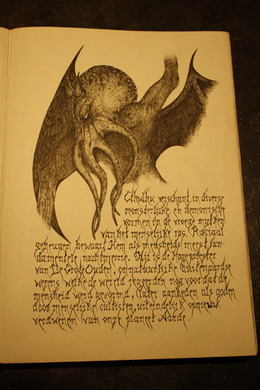 Cthulhu verschijnt in diverse
monsterlijke en demonische
vormen in de vroege mythen
van het menselijke ras. Raciaal
geheugen bewaart Hem als mensheids meest fun-
damentele nachtmerrie. Hij is de Hogepriester
van De Grote Ouden, onnatuurlijke buitenaardse
wezens welke de wereld regeerden nog voordat de
mensheid werd gevormd, later aanbeden als goden
door menselijke cultisten, uiteindelijk opnieuw
verdwenen van onze planeet Aarde.